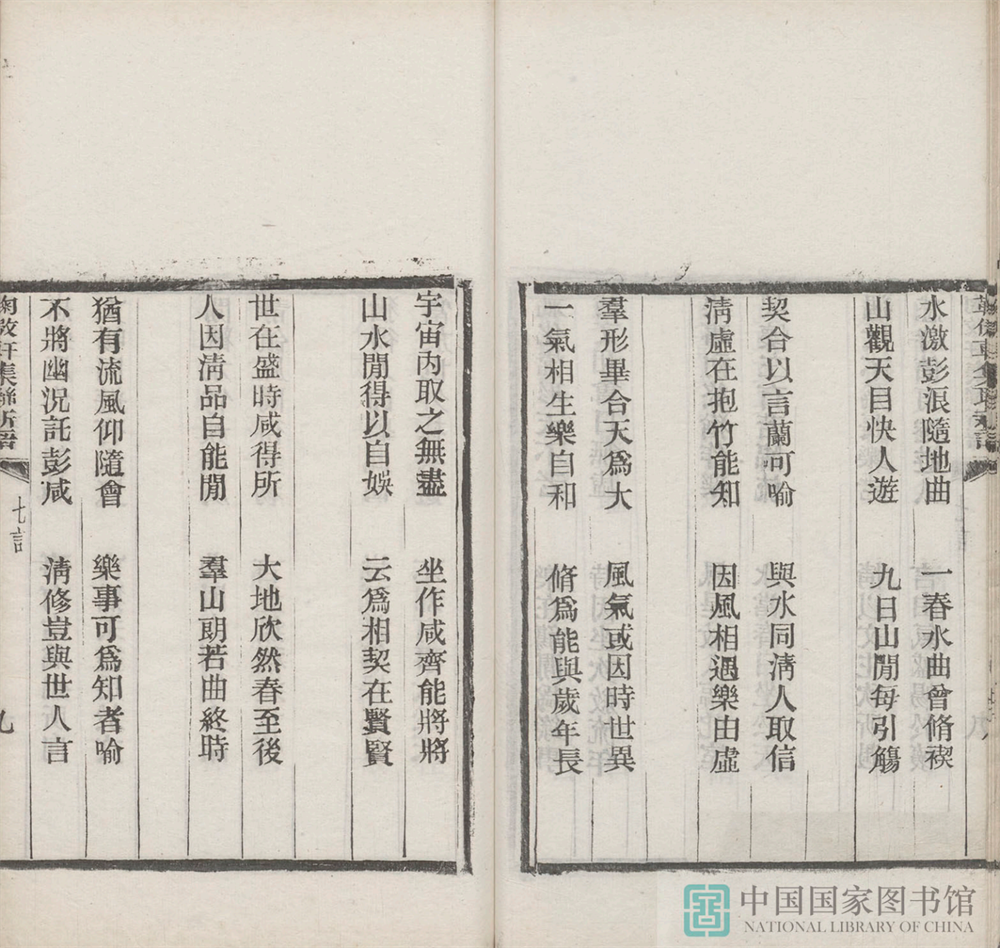 水激彭浪隨地曲　一春水曲曾脩禊
山觀天目快人遊　九日山閒每引觴
契合以言蘭可喻　與水同淸人取信
淸虛在抱竹能知　因風相遇樂由虛
羣形畢合天爲大　風氣或因時世異
一氣相生樂自和　脩爲能與歲年長
宇宙內取之無盡　坐作咸齊能將將
山水閒得以自娛　云爲相契在賢賢
世在盛時咸得所　大地欣然春至後
人因淸品自能閒　羣山朗若曲終時
猶有流風仰隨會　樂事可爲知者喻
不將幽況託彭咸　淸修豈與世人言
七言
九
中国国家图书馆
NATIONAL LIBRARY OF CHINA